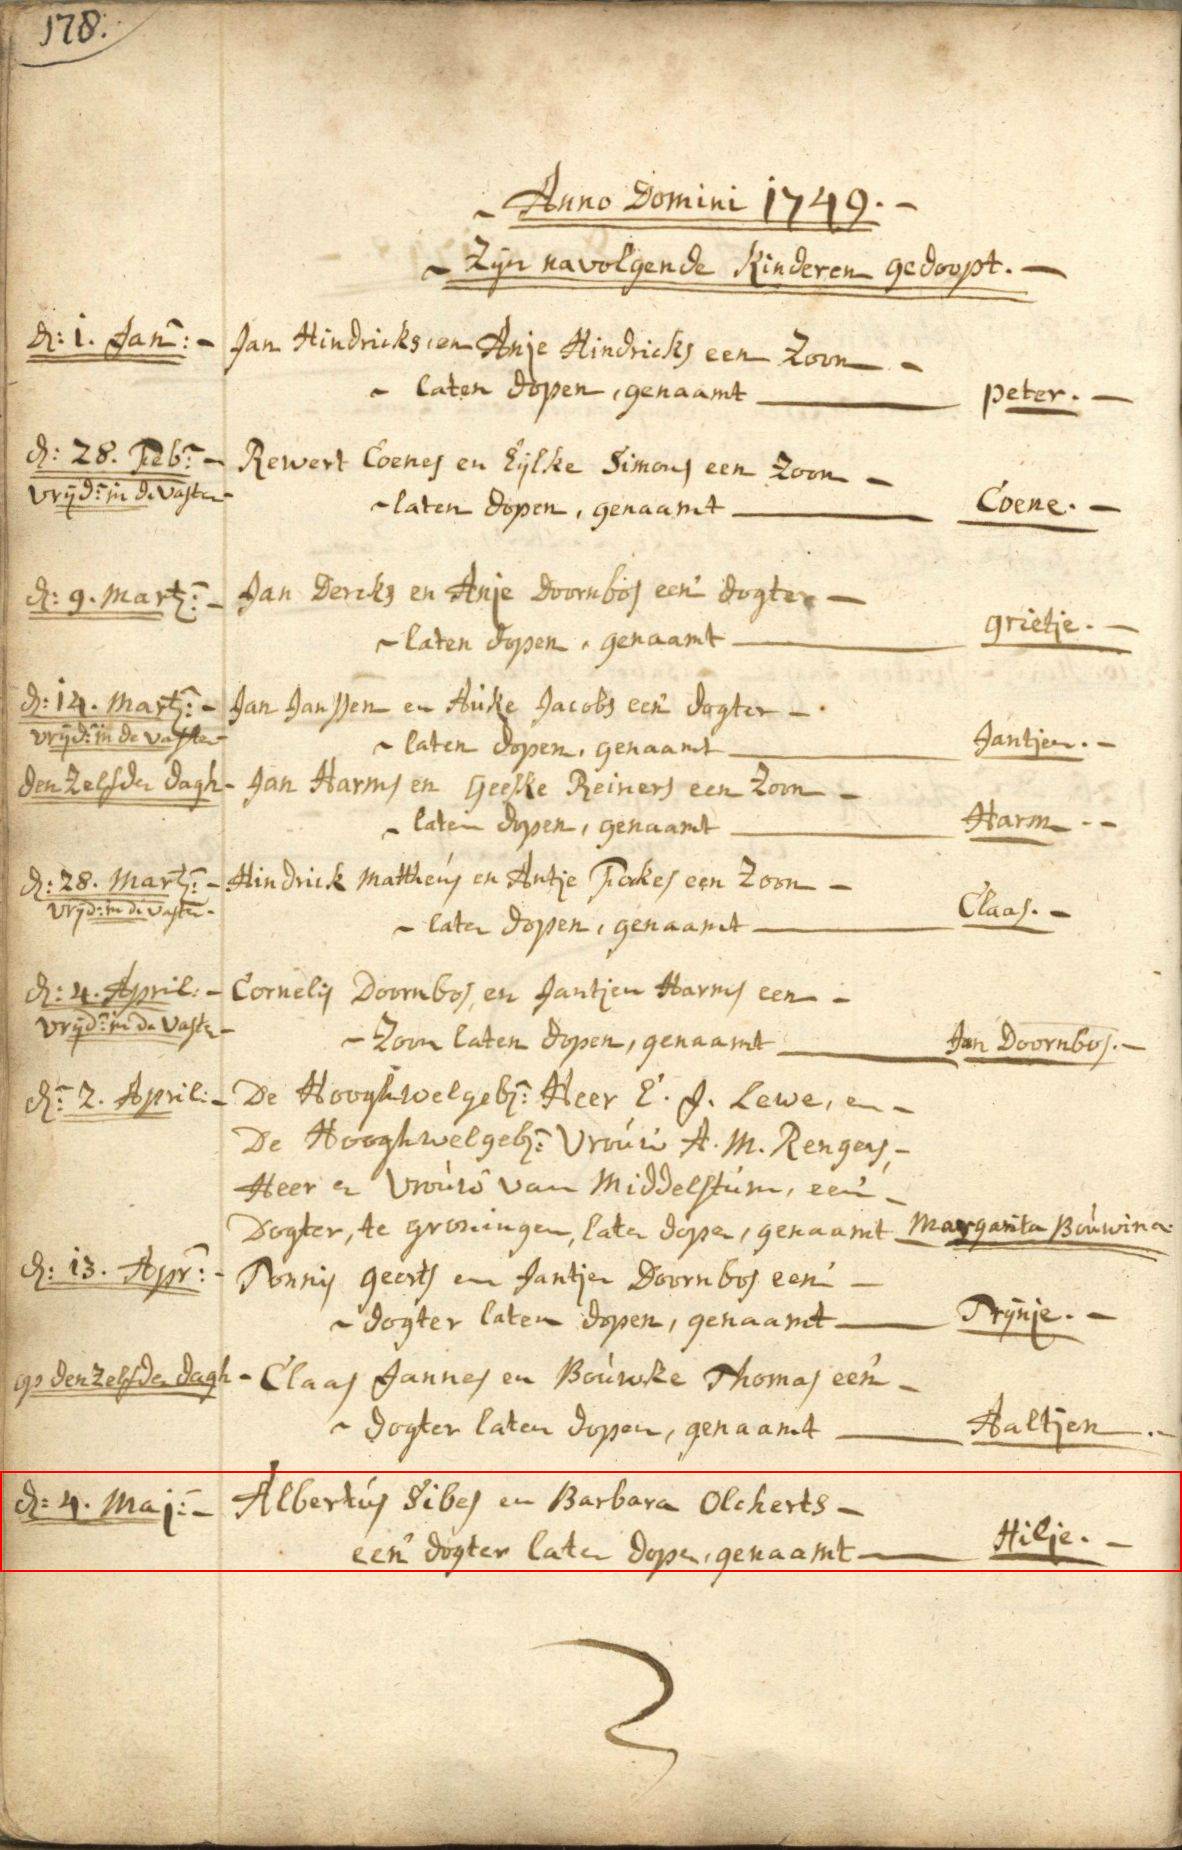 178.
Anno Domini 1749.
Zijn navolgende Kinderen gedoopt.
d: 1. Jan: Jan Hindricks, en Anje Hindricks een Zoon
laten dopen, genaamt peter.
d: 28. Feb: Rewert Coenes en Eijlke Simons een Zoon
vrijd: in de vasten laten dopen, genaamt Coene.
d: 9. Mart: Jan Dercks en Anje Doornbos een dogter
laten dopen, genaamt grietje.
d: 14. Mart: Jan Janssen en Auke Jacobs een dogter
vrijd: in de vasten laten dopen, genaamt Jantjen.
den Zelfden dagh Jan Harms en Geeske Reiners een Zoon
laten dopen, genaamt Harm
d: 28. Mart: Hindrick Mattheus en Antje Fockes een Zoon
vrijd: in de vasten laten dopen, genaamt Claas.
d: 4. April: Cornelis Doornbos, en Jantjen Harms een
vrijd: in de vasten Zoon laten dopen, genaamt Jan Doornbos.
d: 2. April: De Hooghwelgeb: Heer E. J. Lewe, en
De Hooghwelgeb: Vrouw A. M. Rengers,
Heer en Vrouw van Middelstum, een
Dogter, te groningen, laten dopen, genaamt Margarita Bouwina
d: 13. Apr: Tonnis geerts en Jantjen Doornbos een
dogter laten dopen, genaamt Trijnje.
op den Zelfden dagh Claas Jannes en Bouwke Thomas een
dogter laten dopen, genaamt Aaltjen
d: 4. Maj: Albertus Sibes en Barbara Olcherts
een dogter laten dopen, genaamt Hilje.